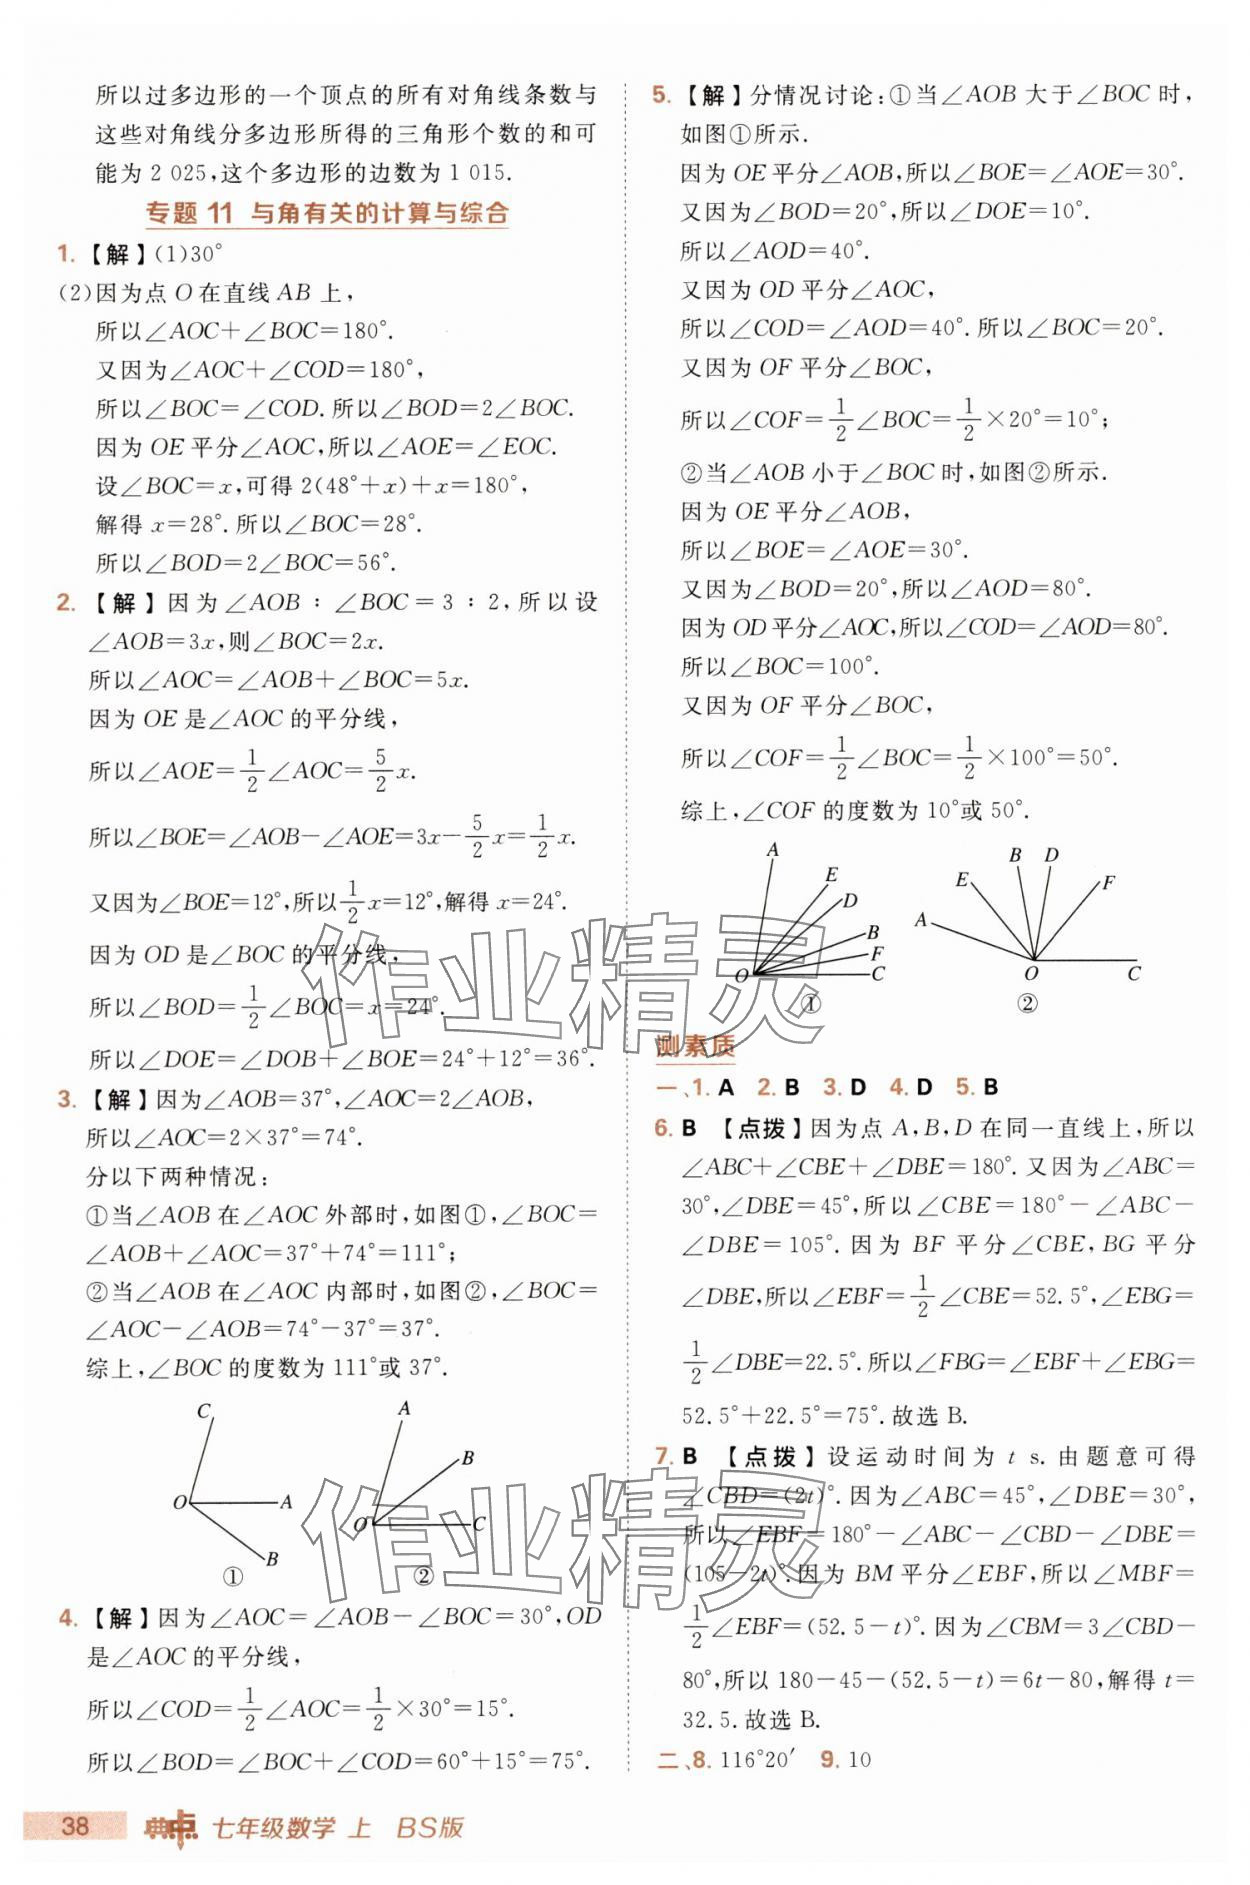 所以过多边形的一个顶点的所有对角线条数与
这些对角线分多边形所得的三角形个数的和可
能为2 025,这个多边形的边数为1 015.
专题 11 与角有关的计算与综合
1.【解】(1)30°
(2)因为点O在直线AB上,
所以∠AOC+∠BOC=180°.
又因为∠AOC+∠COD=180°,
所以∠BOC=∠COD.所以∠BOD=2∠BOC.
因为OE平分∠AOC,所以∠AOE=∠EOC.
设∠BOC=x,可得2(48°+x)+x=180°,
解得x=28°.所以∠BOC=28°.
所以∠BOD=2∠BOC=56°.
2.【解】因为∠AOB∶∠BOC=3∶2,所以设
∠AOB=3x,则∠BOC=2x.
所以∠AOC=∠AOB+∠BOC=5x.
因为OE是∠AOC的平分线,
所以∠AOE=1/2∠AOC=5/2x.
所以∠BOE=∠AOB-∠AOE=3x-5/2x=1/2x.
又因为∠BOE=12°,所以1/2x=12°,解得x=24°.
因为OD是∠BOC的平分线,
所以∠BOD=1/2∠BOC=x=24°.
所以∠DOE=∠DOB+∠BOE=24°+12°=36°.
3.【解】因为∠AOB=37°,∠AOC=2∠AOB,
所以∠AOC=2×37°=74°.
分以下两种情况:
①当∠AOB在∠AOC外部时,如图①,∠BOC=
∠AOB+∠AOC=37°+74°=111°;
②当∠AOB在∠AOC内部时,如图②,∠BOC=
∠AOC-∠AOB=74°-37°=37°.
综上,∠BOC的度数为111°或37°.
C
O
A
B
①
A
B
O
C
②
4.【解】因为∠AOC=∠AOB-∠BOC=30°,OD
是∠AOC的平分线,
所以∠COD=1/2∠AOC=1/2×30°=15°.
所以∠BOD=∠BOC+∠COD=60°+15°=75°.
5.【解】分情况讨论:①当∠AOB大于∠BOC时,
如图①所示.
因为OE平分∠AOB,所以∠BOE=∠AOE=30°.
又因为∠BOD=20°,所以∠DOE=10°.
所以∠AOD=40°.
又因为OD平分∠AOC,
所以∠COD=∠AOD=40°.所以∠BOC=20°.
又因为OF平分∠BOC,
所以∠COF=1/2∠BOC=1/2×20°=10°;
②当∠AOB小于∠BOC时,如图②所示.
因为OE平分∠AOB,
所以∠BOE=∠AOE=30°.
又因为∠BOD=20°,所以∠AOD=80°.
因为OD平分∠AOC,所以∠COD=∠AOD=80°.
所以∠BOC=100°.
又因为OF平分∠BOC,
所以∠COF=1/2∠BOC=1/2×100°=50°.
综上,∠COF的度数为10°或50°.
A
E
D
B
F
O
C
①
B
D
E
F
A
O
C
②
测素质
一、1. A 2. B 3. D 4. D 5. B
6. B 【点拨】因为点A,B,D在同一直线上,所以
∠ABC+∠CBE+∠DBE=180°.又因为∠ABC=
30°,∠DBE=45°,所以∠CBE=180°-∠ABC-
∠DBE=105°.因为BF平分∠CBE,BG平分
∠DBE,所以∠EBF=1/2∠CBE=52.5°,∠EBG=
1/2∠DBE=22.5°.所以∠FBG=∠EBF+∠EBG=
52.5°+22.5°=75°.故选B.
7. B 【点拨】设运动时间为t s.由题意可得
∠CBD=(2t)°.因为∠ABC=45°,∠DBE=30°,
所以∠EBF=180°-∠ABC-∠CBD-∠DBE=
(105-2t)°.因为BM平分∠EBF,所以∠MBF=
1/2∠EBF=(52.5-t)°.因为∠CBM=3∠CBD-
80°,所以180-45-(52.5-t)=6t-80,解得t=
32.5.故选B.
二、8. 116°20′ 9. 10
38 典中点 七年级数学 上 BS版
作业精灵
作业精灵